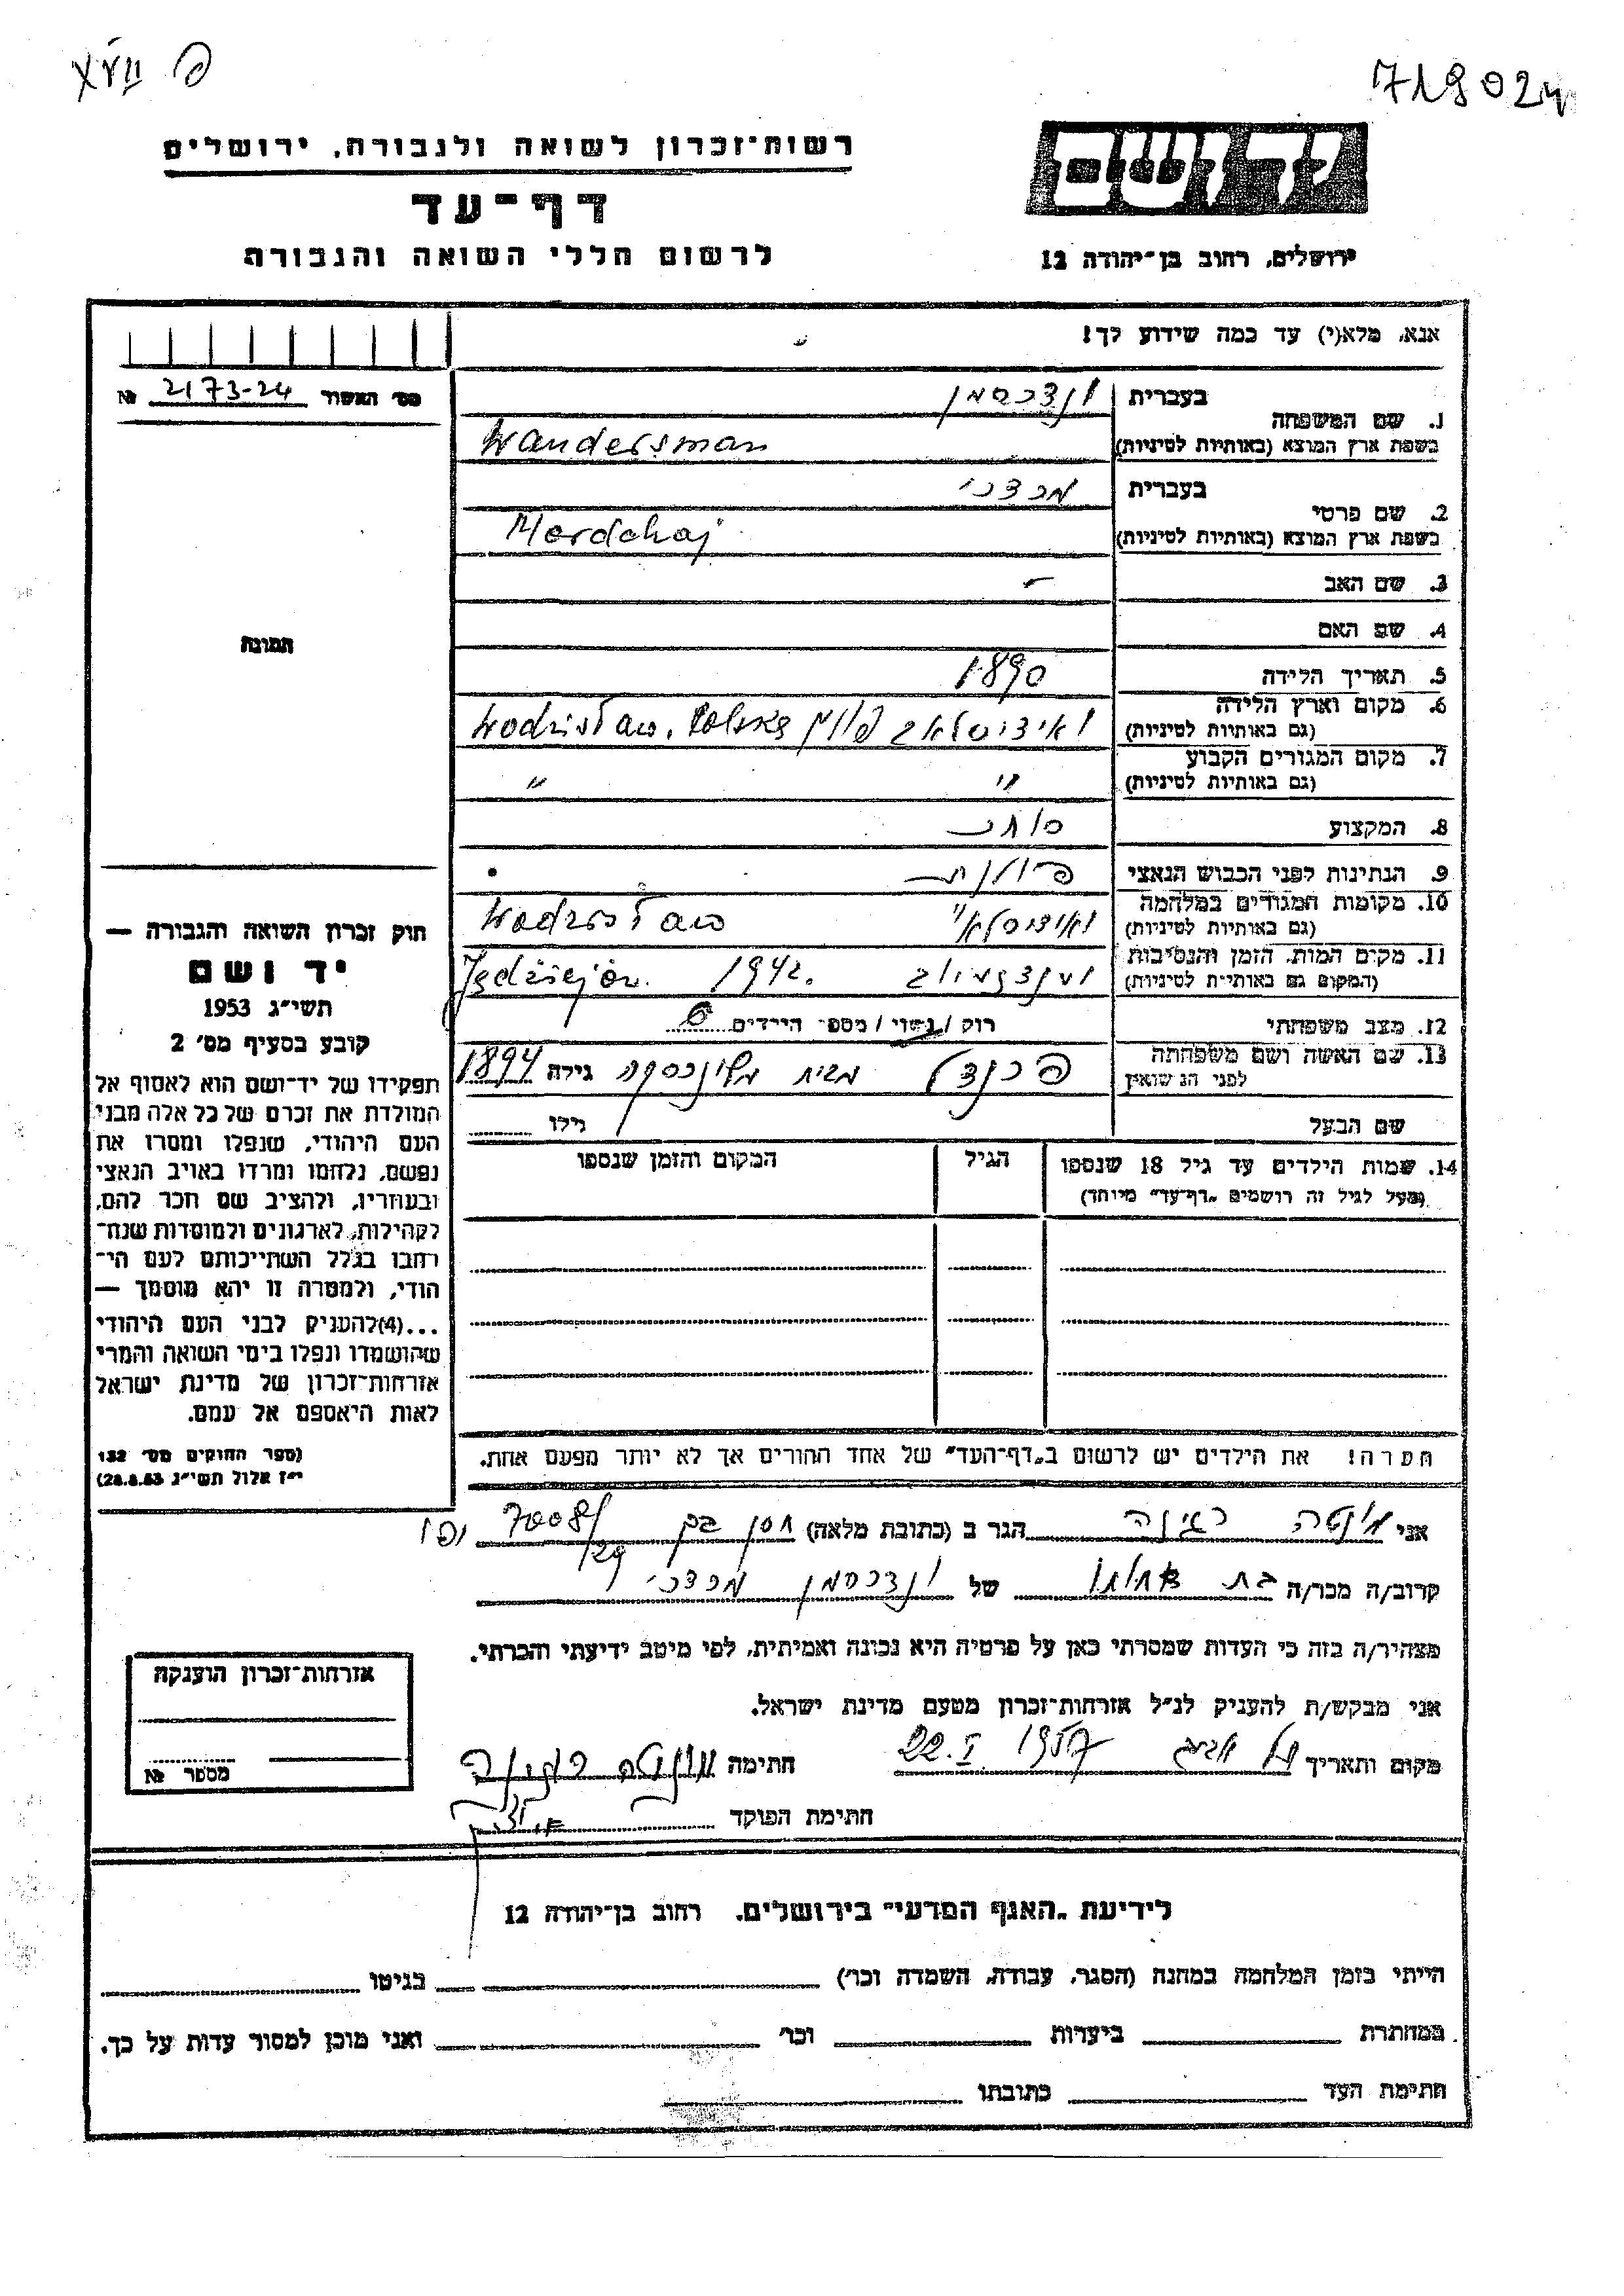 719024
רשות־זכרון לשואה ולגבורה, ירושלים
יד ושם
דף־עד
לרשום חללי השואה והגבורה
ירושלים, רחוב בן־יהודה 12
אנא, מלא(י) עד כמה שידוע לך!
מס׳ האשור 2173-24 №
1. שם המשפחה
בעברית ונדרסמן
בשפת ארץ המוצא (באותיות לטיניות) Wandersman
2. שם פרטי
בעברית מרדכי
בשפת ארץ המוצא (באותיות לטיניות) Mordchaj
3. שם האב -
4. שם האם
תמונה
5. תאריך הלידה 1890
6. מקום וארץ הלידה
(גם באותיות לטיניות) פולין Wodzisław, Polska
7. מקום המגורים הקבוע
(גם באותיות לטיניות) " "
8. המקצוע סוחר
9. הנתינות לפני הכבוש הנאצי פולנית
10. מקומות המגורים במלחמה
(גם באותיות לטיניות) Wodzisław
11. מקום המות, הזמן והנסיבות
(המקום גם באותיות לטיניות) Jędrzejów. 1942.
12. מצב משפחתי רוק / נשוי / מספר הילדים 6
13. שם האשה ושם משפחתה
לפני הנישואין מבית גילה 1894
שם הבעל גילו
14. שמות הילדים עד גיל 18 שנספו הגיל המקום והזמן שנספו
(מעל לגיל זה רושמים „דף־עד” מיוחד)
חוק זכרון השואה והגבורה —
יד ושם
תשי״ג 1953
קובע בסעיף מס׳ 2
תפקידו של יד־ושם הוא לאסוף אל
המולדת את זכרם של כל אלה מבני
העם היהודי, שנפלו ומסרו את
נפשם, נלחמו ומרדו באויב הנאצי
ובעוזריו, ולהציב שם וזכר להם,
לקהילות, לארגונים ולמוסדות שנח־
רבו בגלל השתייכותם לעם הי־
הודי, ולמטרה זו יהא מוסמך —
...(4)להעניק לבני העם היהודי
שהושמדו ונפלו בימי השואה והמרי
אזרחות־זכרון של מדינת ישראל
לאות היאספם אל עמם.
(ספר החוקים מס׳ 132
י״ז אלול תשי״ג 28.8.53)
הערה! את הילדים יש לרשום ב„דף־העד” של אחד ההורים אך לא יותר מפעם אחת.
אני הגר ב (כתובת מלאה) חסן בק 7008/29 יפו
קרוב/ה מכר/ה בת אחותו של ונדרסמן מרדכי
מצהיר/ה בזה כי העדות שמסרתי כאן על פרטיה היא נכונה ואמיתית, לפי מיטב ידיעתי והכרתי.
אני מבקש/ת להעניק לנ״ל אזרחות־זכרון מטעם מדינת ישראל.
מקום ותאריך תל אביב 22.I. 1957 חתימה
חתימת הפוקד
אזרחות־זכרון הוענקה
מספר №
לידיעת „האגף המדעי” בירושלים, רחוב בן־יהודה 12
הייתי בזמן המלחמה במחנה (הסגר, עבודה, השמדה וכו׳) בגיטו
במחתרת ביערות וכו׳ ואני מוכן למסור עדות על כך.
חתימת העד כתובתו